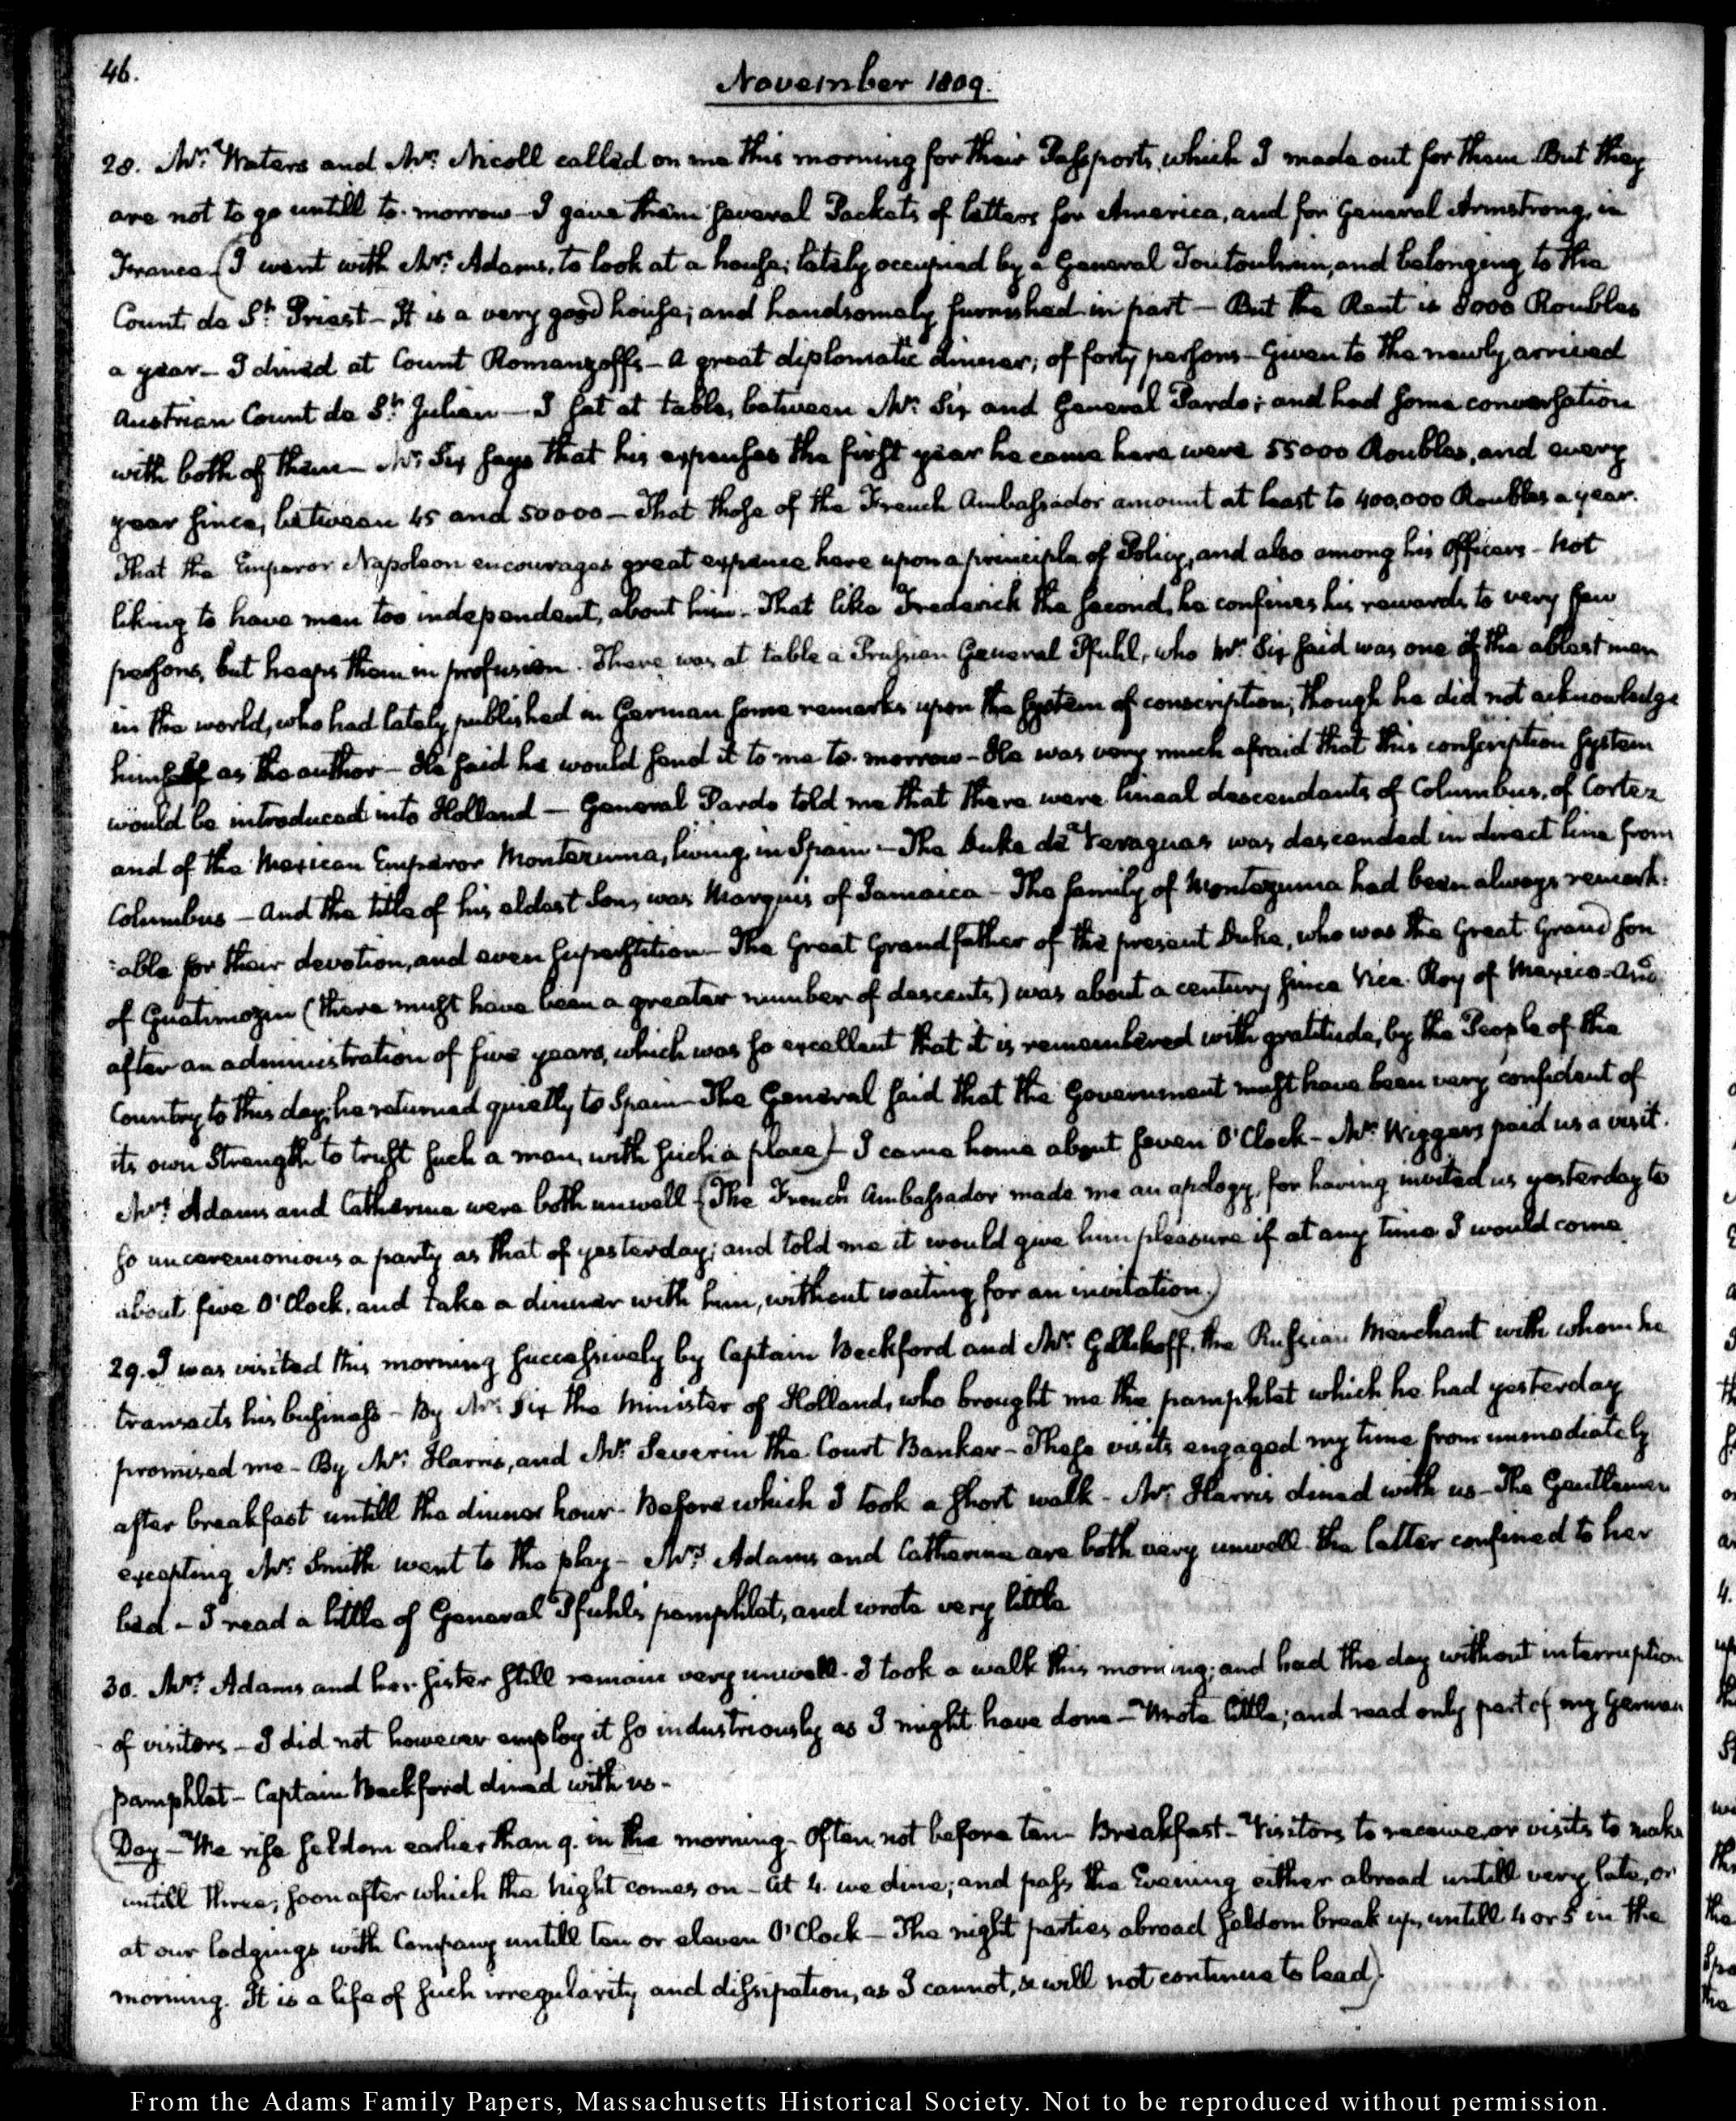 46.
November 1809.
28. Mr. Waters and Mr. Nicoll called on me this morning for their Passports, which I made out for them. But they
are not to go untill to-morrow—I gave them several Packets of letters for America, and for General Armstrong, in
France. (I went with Mrs. Adams, to look at a house; lately occupied by a General and belonging to the
Count de St. Priest—It is a very good house; and handsomely furnished in part—But the Rent is 8000 Roubles
a year—I dined at Count Romanzoff's—A great diplomatic dinner; of forty persons—Given to the newly arrived
Austrian Count de St. Julien—I sat at table, between Mr. Six and General Pardo; and had some conversation
with both of them—Mr. Six says that his expenses the first year he came here were 55000 Roubles, and every
year since, between 45 and 50000—That those of the French Ambassador amount at least to 400,000 Roubles a year.
That the Emperor Napoleon encourages great expence here upon a principle of Policy, and also among his officers—Not
liking to have men too independent, about him—That like Frederick the second, he confines his rewards to very few
persons, but heaps them in profusion. There was at table a Prussian General Pfuhl, who Mr. Six said was one of the ablest men
in the world, who had lately published in German some remarks upon the system of conscription; though he did not acknowledge
himself as the author—He said he would send it to me to-morrow—He was very much afraid that this conscription system
would be introduced into Holland—General Pardo told me that there were lineal descendants of Columbus, of Cortez
and of the Mexican Emperor Montezuma, living, in Spain—The Duke de Veraguas was descended in direct line from
Columbus—And the title of his eldest son, was Marquis of Jamaica—The family of Montezuma had been always remark-
able for their devotion, and even superstition—The Great Grandfather of the present Duke, who was the Great-Grand son
of Guatimozin (there must have been a greater number of descents) was about a century since Vice-Roy of Mexico—And
after an administration of five years, which was so excellent that it is remembered with gratitude, by the People of the
Country to this day; he returned quietly to Spain—The General said that the Government must have been very confident of
its own Strength to trust such a man, with such a place)—I came home about seven O'Clock—Mr. Wiggers paid us a visit.
Mrs. Adams and Catherine were both unwell (The French Ambassador made me an apology, for having invited us yesterday to
so unceremonious a party as that of yesterday; and told me it would give him pleasure if at any time I would come
about five O'Clock, and take a dinner with him, without waiting for an invitation.)
29. I was visited this morning successively by Captain Beckford and Mr. the Russian Merchant with whom he
transacts his business—By Mr. Six the Minister of Holland, who brought me the pamphlet which he had yesterday
promised me—By Mr. Harris, and Mr. Severin the Court Banker—These visits engaged my time from immediately
after breakfast untill the dinner hour—Before which I took a short walk—Mr. Harris dined with us—The Gentlemen
excepting Mr. Smith went to the play—Mrs. Adams and Catherine are both very unwell—the latter confined to her
bed—I read a little of General Pfuhl's pamphlet, and wrote very little
30. Mrs. Adams and her sister still remain very unwell—I took a walk this morning; and had the day without interruption
of visitors—I did not however employ it so industriously as I might have done—Wrote little; and read only part of my German
pamphlet—Captain Beckford dined with us—
(Day—We rise seldom earlier than 9. in the morning—Often, not before ten—Breakfast—Visitors to receive, or visits to make
untill three; soon after which the night comes on—At 4. we dine; and pass the Evening either abroad untill very late, or
at our lodgings with Company untill ten or eleven O'Clock—The night parties abroad seldom break up, untill 4 or 5 in the
morning. It is a life of such irregularity and dissipation, as I cannot, & will not continue to lead).
From the Adams Family Papers, Massachusetts Historical Society. Not to be reproduced without permission.